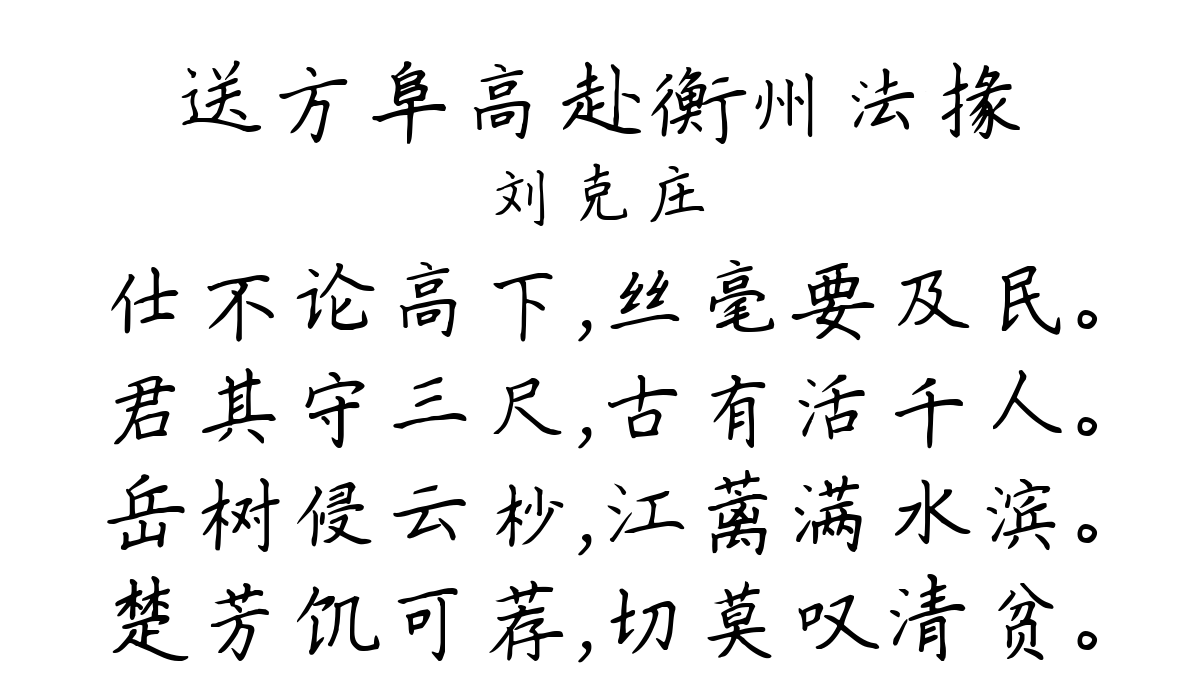 送方阜高赴衡州法掾
刘克庄
仕不论高下,丝毫要及民。
君其守三尺,古有活千人。
岳树侵云杪,江蓠满水滨。
楚芳饥可荐,切莫叹清贫。